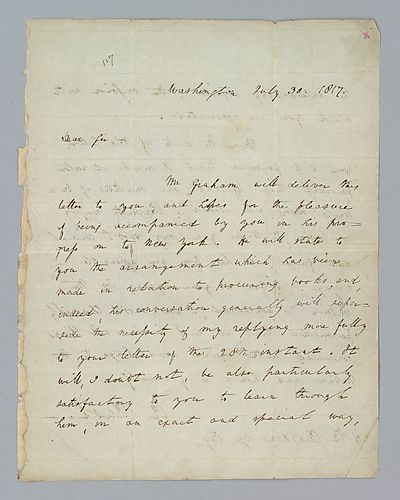 117
x
Washington July 30. 1817.
Dear Sir
Mr Graham will deliver this
letter to you, and hopes for the pleasure
of being accompanied by you in his pro-
gress on to New York. He will state to
you the arrangement which has been
made in relation to procuring books, and
indeed his conversation generally will super-
sede the necessity of my replying more fully
to your letter of the 28th instant. It
will, I doubt not, be also particularly
satisfactory to you to learn through
him, in an exact and special way,